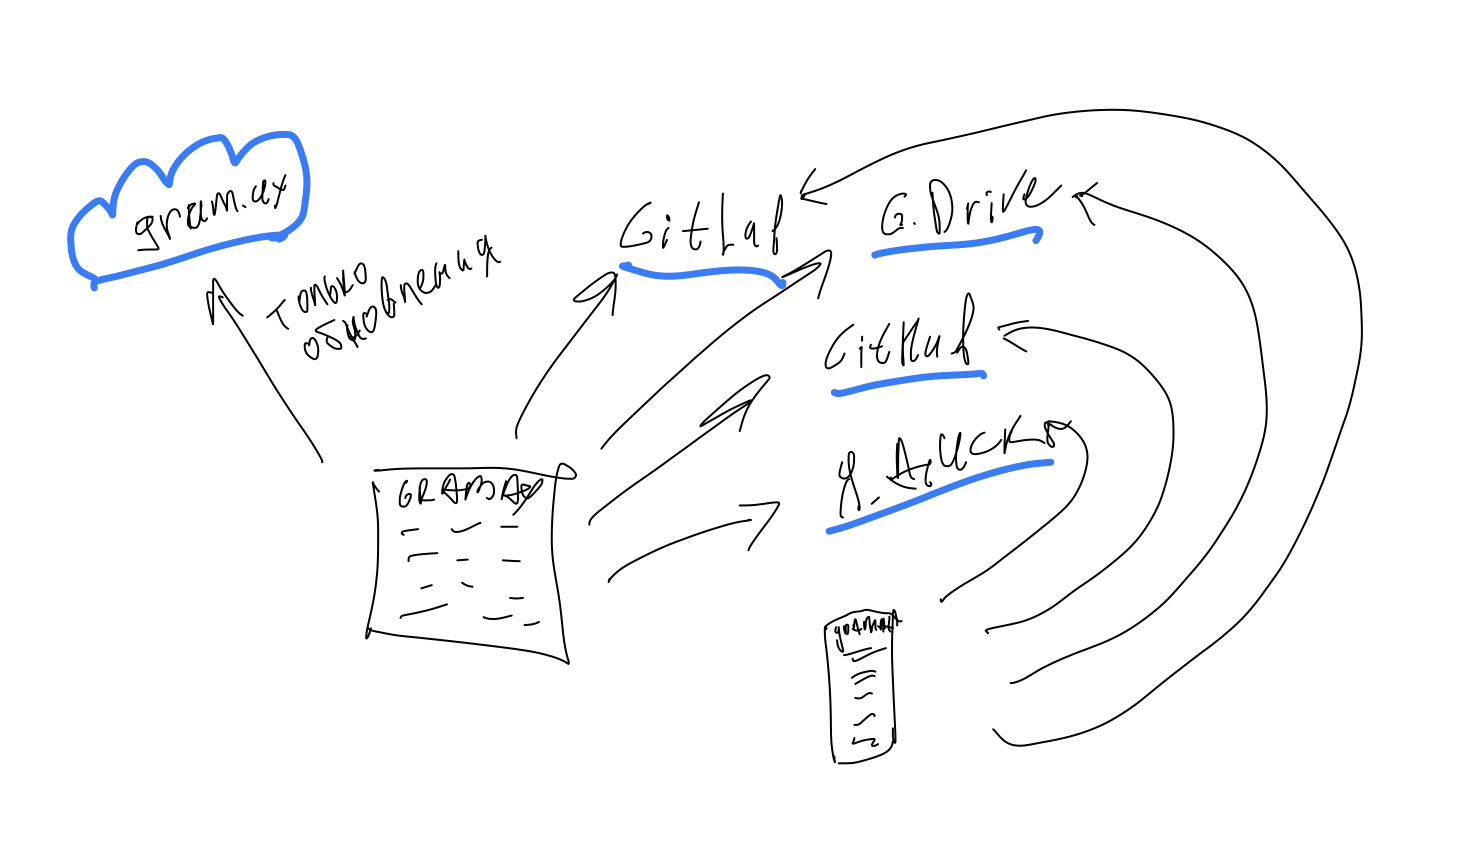 gram.ax
только
обновления
GitLab
G.Drive
GitHub
Я.Диск
GRAMAX
gramax